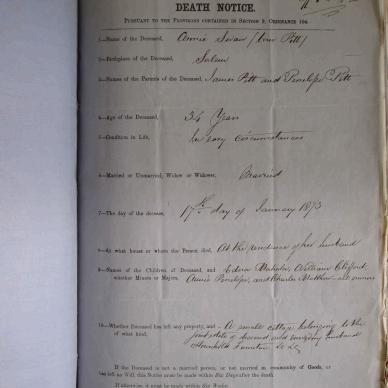 DEATH NOTICE.
PURSUANT TO THE PROVISIONS CONTAINED IN SECTION 9, ORDINANCE 104.
1—Name of the Deceased, Annie Swan (born Pitt)
2—Birthplace of the Deceased, Salem
3—Names of the Parents of the Deceased, James Pitt and Penelope Pitt
4—Age of the Deceased, 34 Years
5—Condition in Life, In easy circumstances
6—Married or Unmarried, Widow or Widower, Married
7—The day of the decease, 17th day of January 1873
8—At what house or where the Person died, At the residence of her husband
9—Names of the Children of Deceased, and Edwin Malcolm, William Clifford,
whether Minors or Majors, Annie Penelope, and Charles Matthew all minors
10—Whether Deceased has left any property, and A small cottage belonging to the
of what kind, joint estate of deceased and surviving husband
Household Furniture &c &c
If the Deceased is not a married person, or not married in community of Goods, or
has left no Will, this Notice must be made within Six Days after the death.
If otherwise, it must be made within Six Weeks.